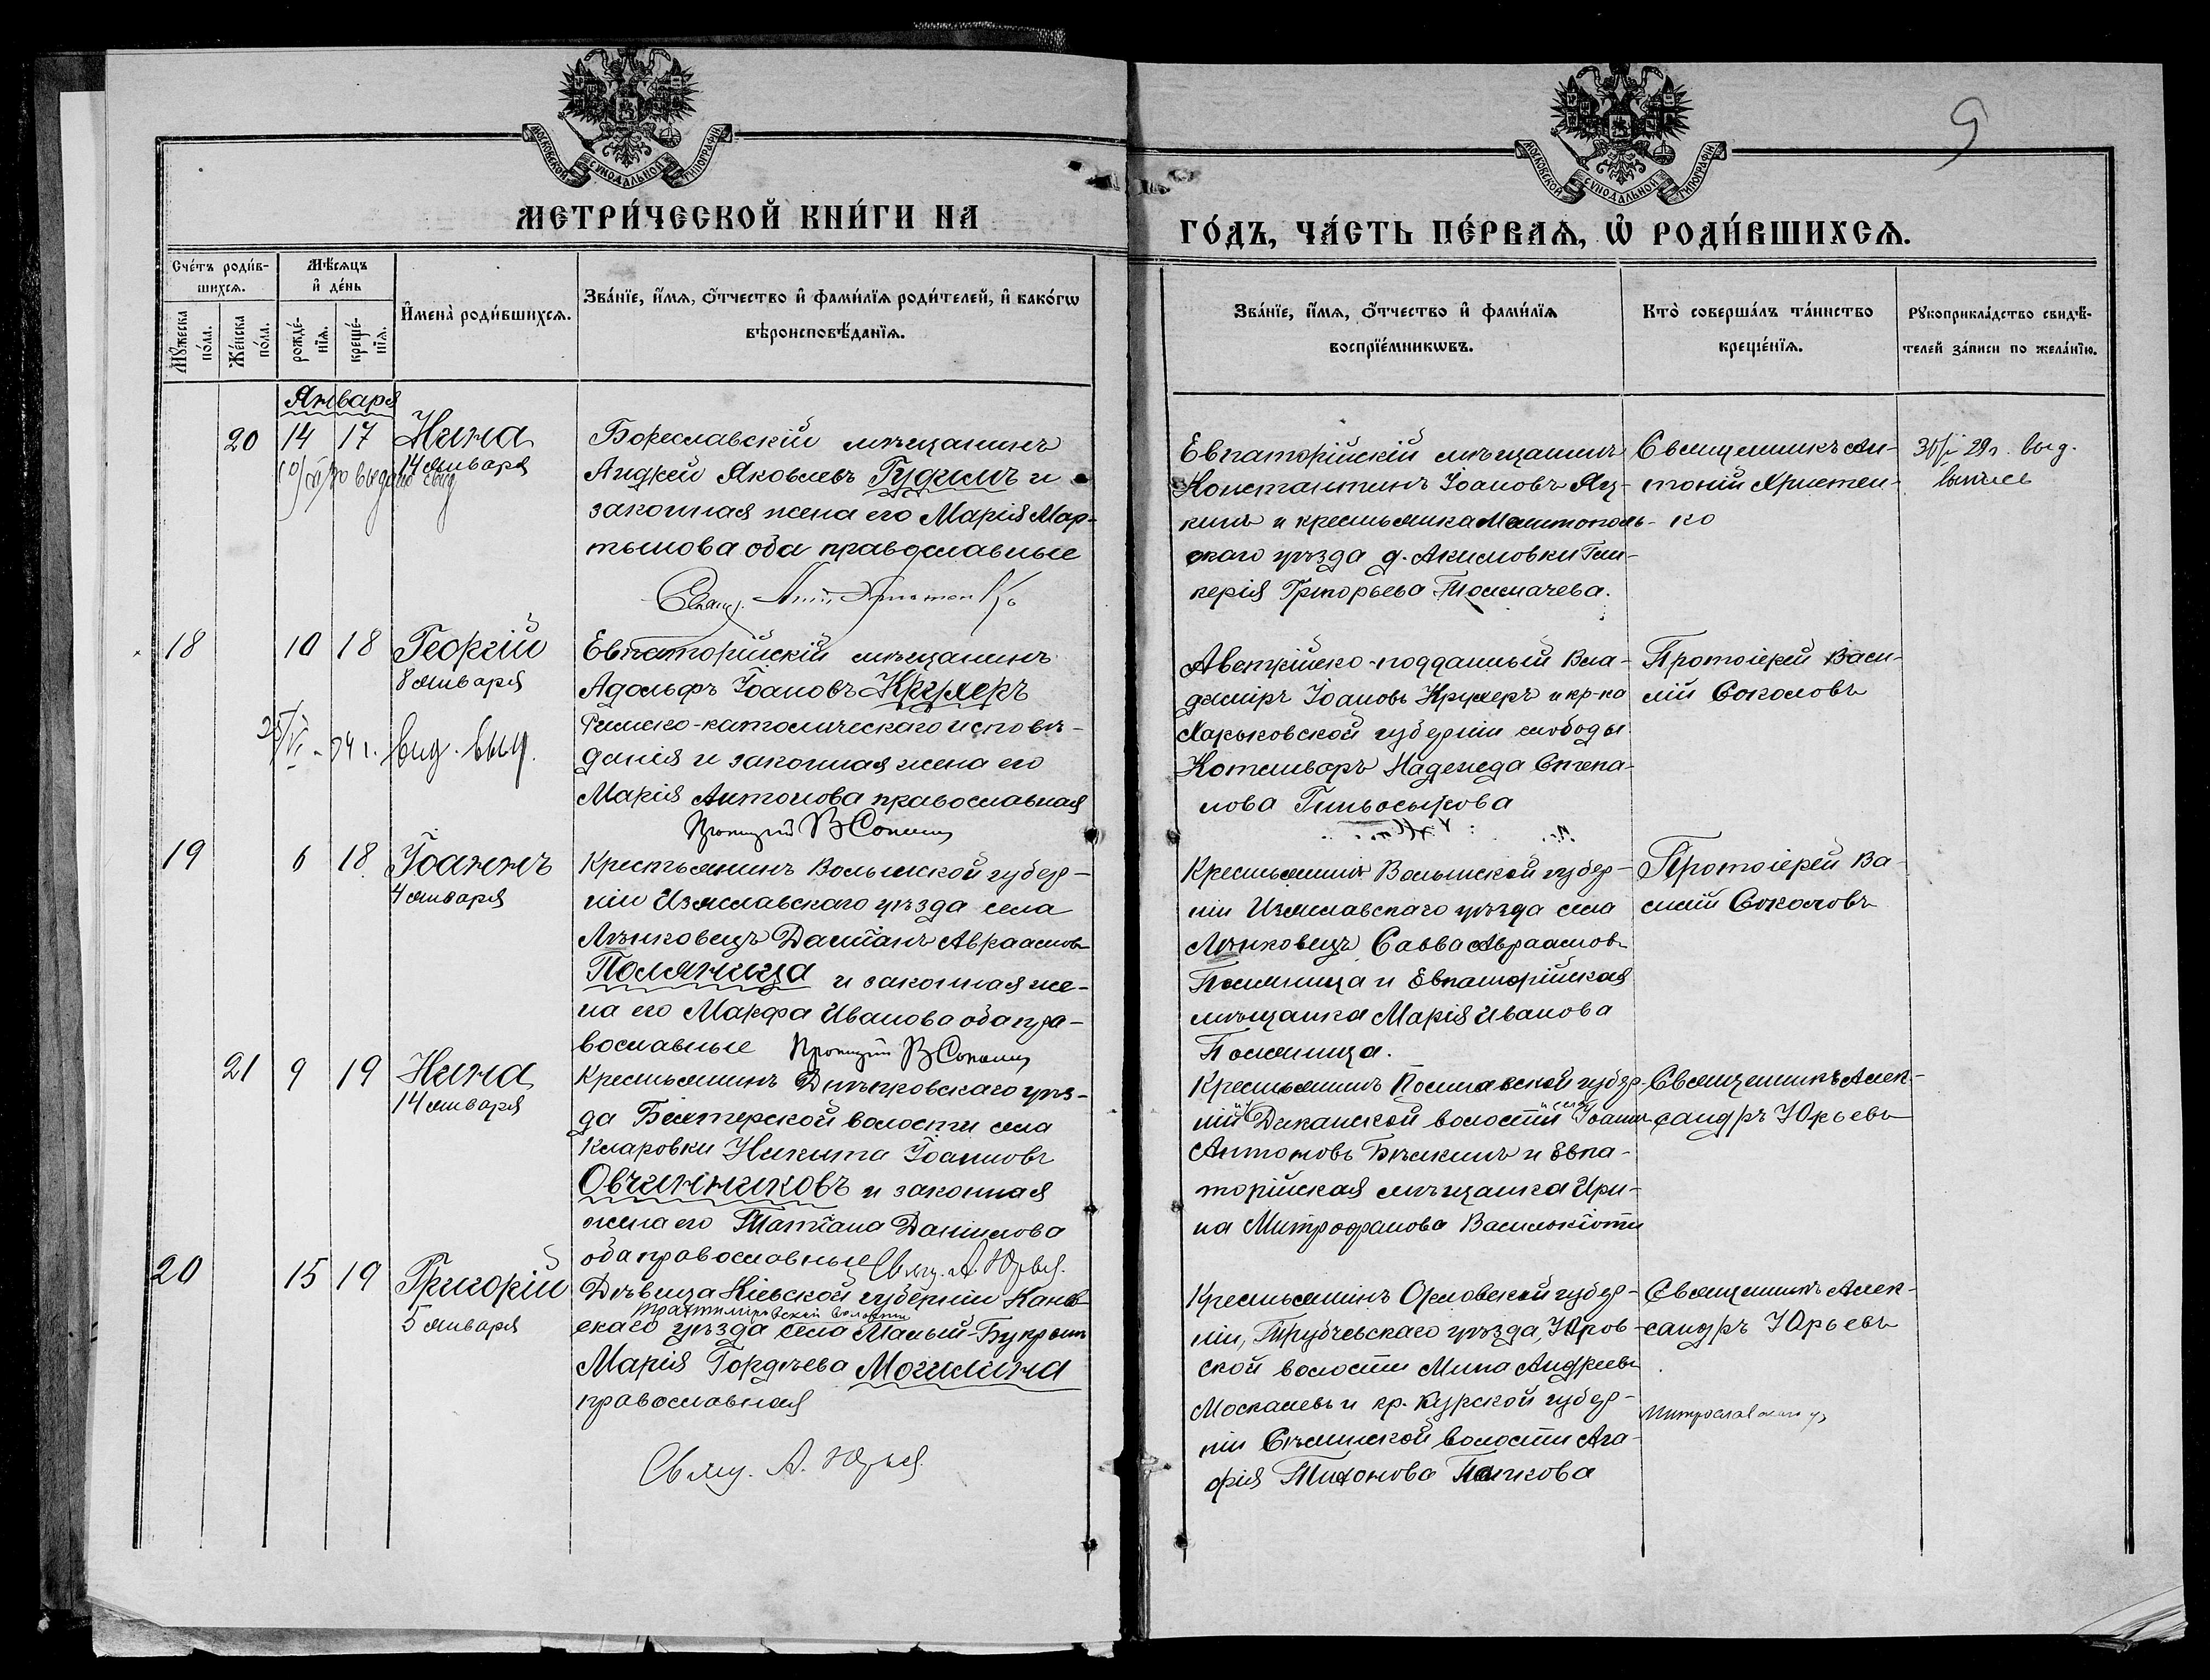 9
МОСКОВСКОЙ СУНОДАЛЬНОЙ ТИПОГРАФІИ
МОСКОВСКОЙ СУНОДАЛЬНОЙ ТИПОГРАФІИ
МЕТРИ́ЧЕСКОЙ КНИ́ГИ НА
ГО́ДЪ, ЧА́СТЬ ПЕ́РВАѦ, Ѡ҆ РОДИ́ВШИХСѦ.
Сче́тъ роди́в-
шихсѧ.
Мꙋ́жеска по́ла.
Же́нска по́ла.
Мѣ́сѧцъ
и҆ де́нь
рожде́-
нїѧ.
креще́-
нїѧ.
И҆мена̀ роди́вшихсѧ.
Зва́нїе, и҆́мѧ, ѻ҆́тчество и҆ фами́лїѧ роди́телей, и҆ како́гѡ
вѣроисповѣ́данїѧ.
Зва́нїе, и҆́мѧ, ѻ҆́тчество и҆ фами́лїѧ
воспрїе́мникѡвъ.
Кто̀ соверша́лъ та́инство
креще́нїѧ.
Рꙋкоприкла́дство свидѣ́-
телей за́писи по жела́нїю.
Января
20 14 17 Нина
14 января
Бориславскій мѣщанинъ
Андрей Яковлевъ Гудимъ и
законная жена его Марія Мар-
тынова оба православные
Евпаторійскій мѣщанинъ
Константинъ Іоановъ Яц-
кинъ и крестьянка Мелитополь-
скаго уѣзда д. Акимовки Гли-
керія Григорьева Толмачева.
Священникъ Ан-
тоній Христен-
ко
29г. выд.
выпись
18 10 18 Георгій
8 января
выд. вып.
Евпаторійскій мѣщанинъ
Адольфъ Іоановъ Кружеръ
Римско-католическаго исповѣ-
данія и законная жена его
Марія Антонова православная
Протоіерей В Соколовъ
Австрійско-подданный Вла-
диміръ Іоановъ Кружеръ и кр-ка
Харьковской губерніи слободы
Котельваръ Надежда Степа-
нова
Протоіерей Васи-
лій Соколовъ
19 6 18 Іоаннъ
4 января
Крестьянинъ Волынской губер-
ніи Изяславскаго уѣзда села
Лѣнковецъ Даміанъ Авраамовъ
Поляница и законная же-
на его Марфа Иванова оба пра-
вославные Протоіерей В Соколовъ
Крестьянинъ Волынской губер-
ніи Изяславскаго уѣзда села
Лѣнковецъ Савва Авраамовъ
Поляница и Евпаторійская
мѣщанка Марія Иванова
Поляница.
Протоіерей Ва-
силій Соколовъ
21 9 19 Нина
14 января
Крестьянинъ Днѣпровскаго уѣз-
да Бехтерской волости села
Кларовки Никита Іоанновъ
Овчинниковъ и законная
жена его Татіана Даніилова
оба православные Свящ. А. Юрьев.
Крестьянинъ Полтавской губер-
ніи Диканской волости и села Іоанн
Антоновъ Бѣлкинъ и Евпа-
торійская мѣщанка Ири-
на Митрофанова Василокіоти
Священникъ Алек-
сандръ Юрьевъ
20 15 19 Григорій
5 января
Дѣвица Кіевской губерніи Канев-
Трахтемировской волости
скаго уѣзда села Малый-Букринъ
Марія Гордѣева Могилина
православная
Свящ. А. Юрьев.
Крестьянинъ Орловской губер-
ніи, Трубчевскаго уѣзда, Юров-
ской волости Мина Андреевъ
Москалевъ и кр. Курской губер-
ніи волости Ага-
фія Тихонова Папкова
Священникъ Алек-
сандръ Юрьевъ